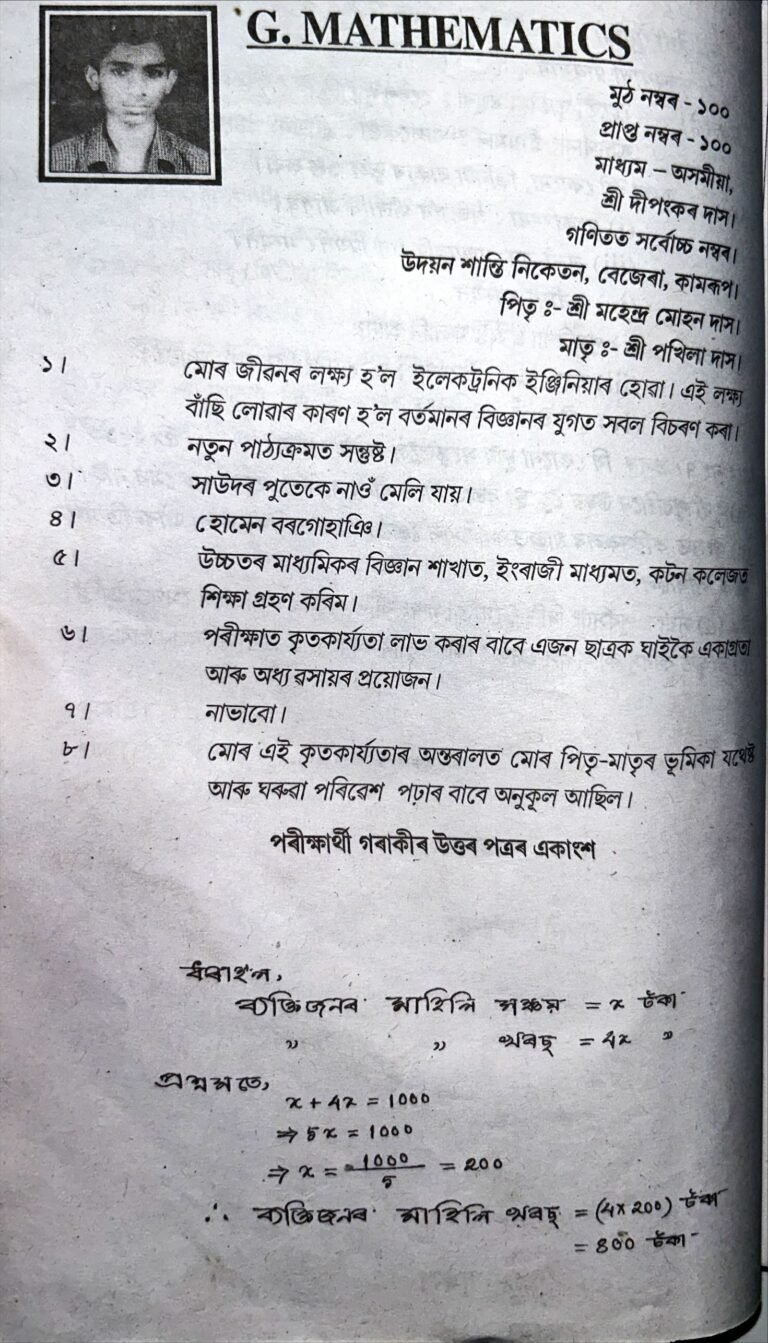 G. MATHEMATICS
মুঠ নম্বৰ - ১০০
প্ৰাপ্ত নম্বৰ - ১০০
মাধ্যম – অসমীয়া,
শ্ৰী দীপংকৰ দাস।
গণিতত সৰ্বোচ্চ নম্বৰ।
উদয়ন শান্তি নিকেতন, বেজেৰা, কামৰূপ।
পিতৃ ঃ- শ্ৰী মহেন্দ্ৰ মোহন দাস।
মাতৃ ঃ- শ্ৰী পখিলা দাস।
১। মোৰ জীৱনৰ লক্ষ্য হ'ল ইলেকট্ৰনিক ইঞ্জিনিয়াৰ হোৱা। এই লক্ষ্য
বাঁছি লোৱাৰ কাৰণ হ'ল বৰ্তমানৰ বিজ্ঞানৰ যুগত সবল বিচৰণ কৰা।
২। নতুন পাঠ্যক্ৰমত সন্তুষ্ট।
৩। সাউদৰ পুতেকে নাওঁ মেলি যায়।
৪। হোমেন বৰগোহাঞি।
৫। উচ্চতৰ মাধ্যমিকৰ বিজ্ঞান শাখাত, ইংৰাজী মাধ্যমত, কটন কলেজত
শিক্ষা গ্ৰহণ কৰিম।
৬। পৰীক্ষাত কৃতকাৰ্য্যতা লাভ কৰাৰ বাবে এজন ছাত্ৰক ঘাইকৈ একাগ্ৰতা
আৰু অধ্যৱসায়ৰ প্ৰয়োজন।
৭। নাভাবো।
৮। মোৰ এই কৃতকাৰ্য্যতাৰ অন্তৰালত মোৰ পিতৃ-মাতৃৰ ভূমিকা যথেষ্ট
আৰু ঘৰুৱা পৰিৱেশ পঢ়াৰ বাবে অনুকূল আছিল।
পৰীক্ষাৰ্থী গৰাকীৰ উত্তৰ পত্ৰৰ একাংশ
ধৰাহ'ল,
ব্যক্তিজনৰ মাহিলি সঞ্চয় = x টকা
" " খৰছ = 4x "
প্ৰশ্নমতে,
x + 4x = 1000
⇒ 5x = 1000
⇒ x = 1000/5 = 200
∴ ব্যক্তিজনৰ মাহিলি খৰছ = (4 x 200) টকা
= 800 টকা